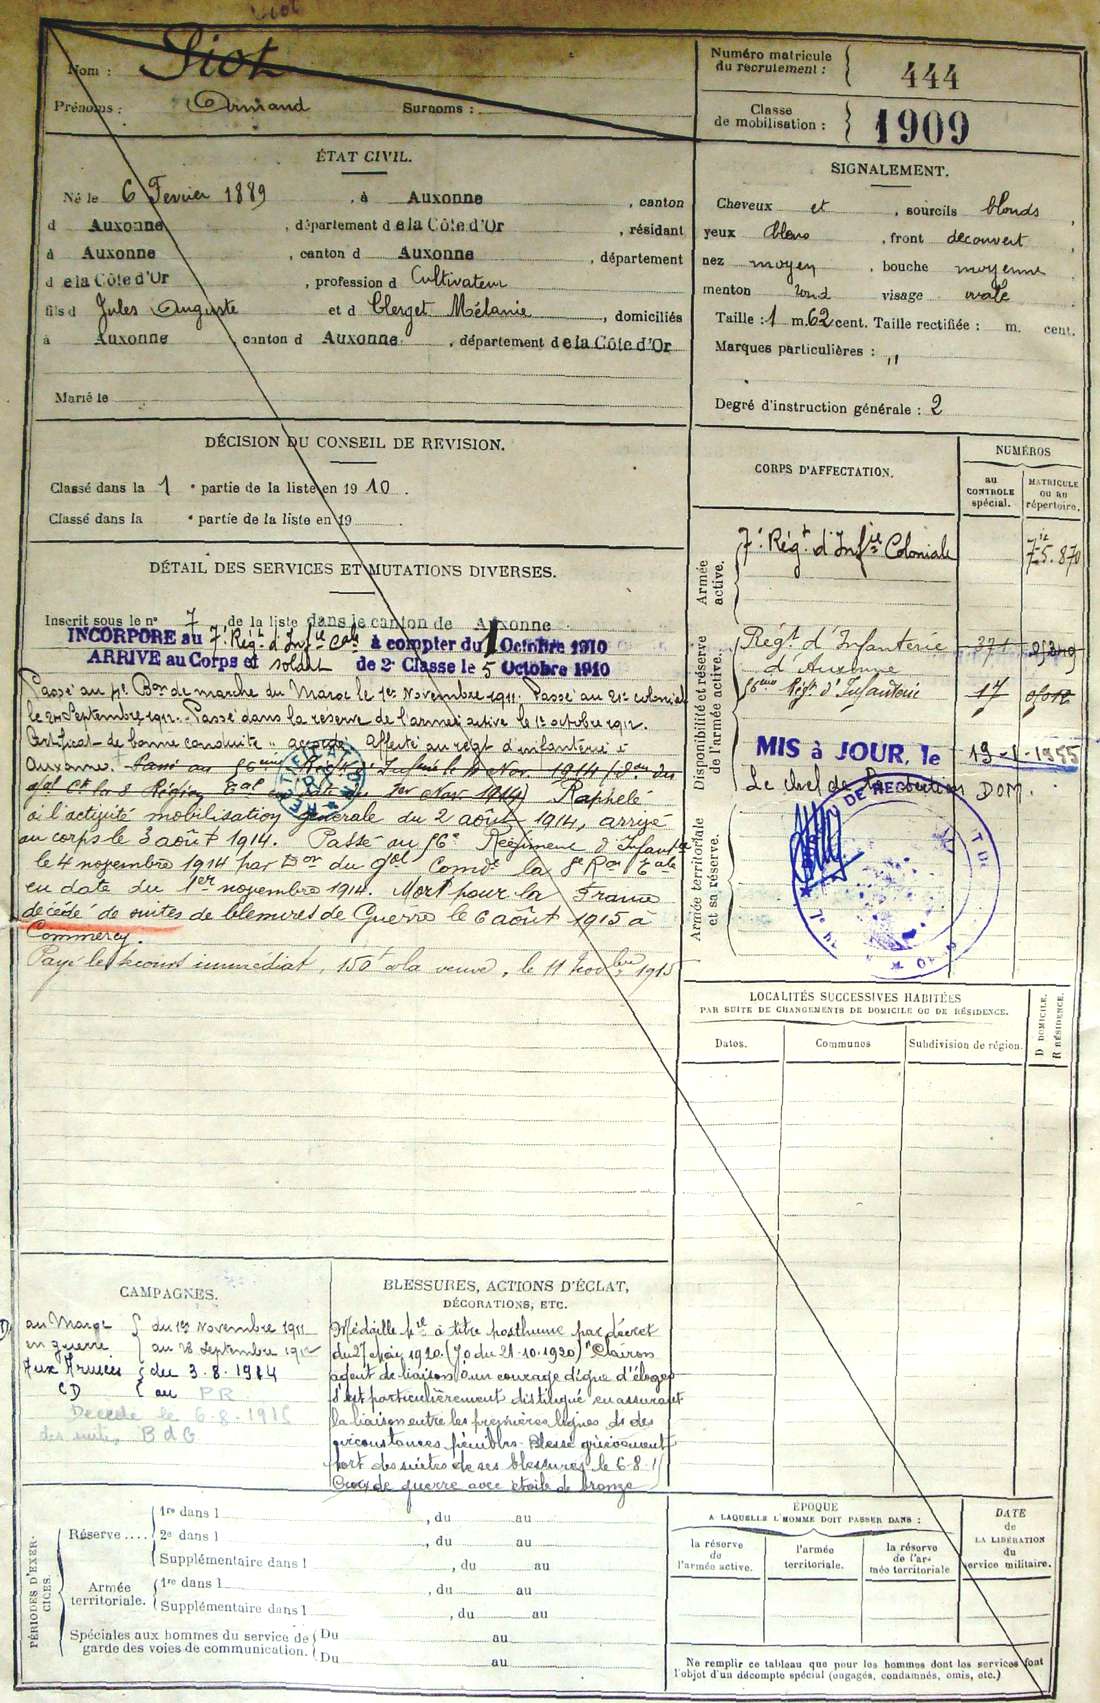 Nom : Piot
Prénoms : Armand Surnoms :
Numéro matricule du recrutement : 444
Classe de mobilisation : 1909
ÉTAT CIVIL.
Né le 6 Fevrier 1889, à Auxonne, canton
d Auxonne, département de la Côte d'Or, résidant
à Auxonne, canton d Auxonne, département
de la Côte d'Or, profession d Cultivateur
fils d Jules Auguste et d Clerget Mélanie, domiciliés
à Auxonne, canton d Auxonne, département de la Côte d'Or
Marié le
SIGNALEMENT.
Cheveux et, sourcils blonds,
yeux bleus, front decouvert
nez moyen, bouche moyenne
menton rond visage ovale
Taille : 1 m. 62 cent. Taille rectifiée : m. cent.
Marques particulières : "
Degré d'instruction générale : 2
DÉCISION DU CONSEIL DE REVISION.
Classé dans la 1 e partie de la liste en 1910.
Classé dans la e partie de la liste en 19
DÉTAIL DES SERVICES ET MUTATIONS DIVERSES.
Inscrit sous le n° 7 de la liste dans le canton de Auxonne
INCORPORE au 7e Régt d'Infie Cale à compter du 1 Octobre 1910
ARRIVE au Corps et soldat de 2e Classe le 5 Octobre 1910
Passé au Bon de marche du Maroc le 1er Novembre 1911. Passé au 21e colonial
le Septembre 1912. Passé dans la reserve de l'armée active le 1er octobre 1912.
Certificat de bonne conduite " accordé " Affecté au régt d'infanterie d'
Auxonne. Passé au 56eme Régt d'Infrie le 4 Nov. 1914 (Don du
gal Ct la 8 Région Eal en date du 1er Nov 1914) Raphelé
à l'activité mobilisation générale du 2 août 1914, arrivé
au corps le 3 août 1914. Passé au 56e Régiment d'Infantie
le 4 novembre 1914 par Don du Gal Comdt la 8e Ron Eale
en date du 1er novembre 1914. Mort pour la France
décédé de suites de blessures de Guerre le 6 août 1915 à
Commercy.
Payé le secours immédiat, 150f à la veuve, le 11 Novbre 1915
RECTIFICATION
CORPS D'AFFECTATION.
NUMÉROS
au CONTROLE spécial.
MATRICULE ou au répertoire.
Armée active.
7e Régt d'Infie Coloniale
Disponibilité et réserve de l'armée active.
Régt d'Infanterie d'Auxonne 371
56eme Régt d'Infanterie 17
MIS à JOUR, le 19-1-1955
Le chef de la section DOM.
Armée territoriale et sa réserve.
LOCALITÉS SUCCESSIVES HABITÉES
PAR SUITE DE CHANGEMENTS DE DOMICILE OU DE RÉSIDENCE.
Dates. Communes Subdivision de région.
D DOMICILE. R RÉSIDENCE.
CAMPAGNES.
au Maroc { du 1er Novembre 1911
en guerre { au 28 Septembre 1912
Aux Armées { du 3.8.1914
CD { au PR
Décédé le 6-8-1915
des suites B d G
BLESSURES, ACTIONS D'ÉCLAT,
DÉCORATIONS, ETC.
Médaille Mre à titre posthume par décret
du 27 Mai 1920. (JO du 21.10.1920) "Clairon
agent de liaison d'un courage digne d'éloges
s'est particulièrement distingué en assurant
la liaison entre les premières lignes ds des
circonstances pénibles. Blessé grièvement
Mort des suites de ses blessures le 6-8-15
Croix de guerre avec étoile de bronze
PÉRIODES D'EXERCICES.
Réserve .... 1re dans l , du au
2e dans l , du au
Supplémentaire dans l , du au
Armée territoriale. 1re dans l , du au
Supplémentaire dans l , du au
Spéciales aux hommes du service de garde des voies de communication. Du au
Du au
ÉPOQUE
A LAQUELLE L'HOMME DOIT PASSER DANS :
la réserve de l'armée active.
l'armée territoriale.
la réserve de l'armée territoriale
DATE de LA LIBÉRATION du service militaire.
Ne remplir ce tableau que pour les hommes dont les services font
l'objet d'un décompte spécial (engagés, condamnés, omis, etc.)